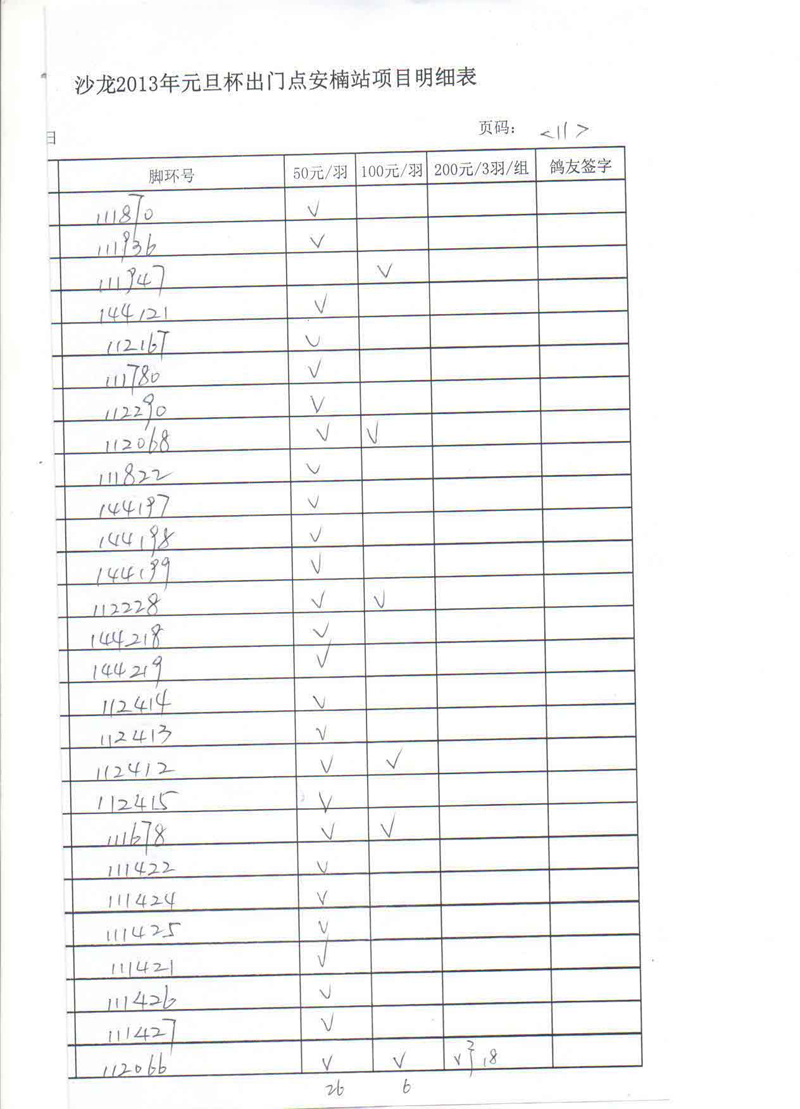 沙龙2013年元旦杯出门点安楠站项目明细表
日 页码: <11>
脚环号 50元/羽 100元/羽 200元/3羽/组 鸽友签字
111870 √
111936 √
111947 √
144121 √
112167 √
111780 √
112290 √
112068 √ √
111822 √
144197 √
144198 √
144199 √
112228 √ √
144218 √
144219 √
112414 √
112413 √
112412 √ √
112415 √
111678 √ √
111422 √
111424 √
111425 √
111421 √
111426 √
111427 √
112066 √ √ √
26 6